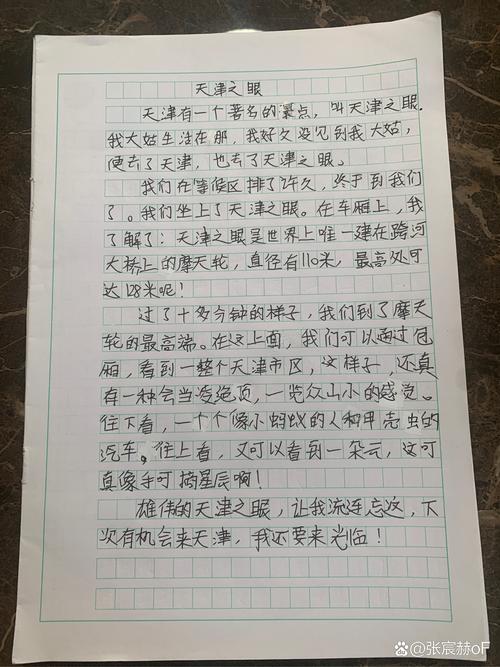 天津之眼
天津有一个著名的景点，叫天津之眼。
我大姑生活在那，我好久没见到我大姑，
便去了天津，也去了天津之眼。
我们在等候区排了许久，终于到我们
了。我们坐上了天津之眼。在车厢上，我
了解了：天津之眼是世界上唯一建在跨河
大桥上的摩天轮，直径有110米，最高处可
达128米呢！
过了十多分钟的样子，我们到了摩天
轮的最高端。在这上面，我们可以通过包
厢，看到一整个天津市区，这样子，还真
有一种会当凌绝顶，一览众山小的感觉。
往下看，一个个像小蚂蚁的人和甲壳虫的
汽车。往上看，又可以看到一朵云，这可
真像手可摘星辰啊！
雄伟的天津之眼，让我流连忘返，下
次有机会来天津，我还要来光临！
@张宸赫oF